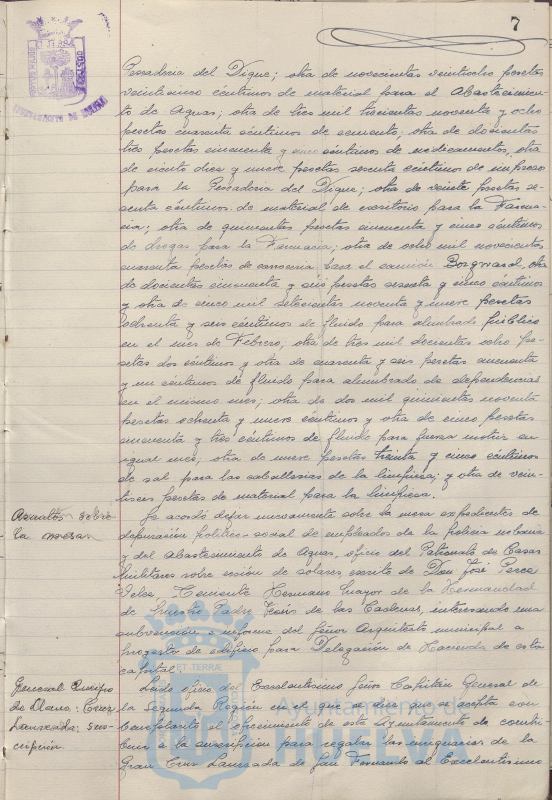 7
Pescadería del Dique; otra de novecientas veintiocho pesetas
veinticinco céntimos de material para el Abastecimien-
to de Aguas; otra de tres mil trescientas noventa y ocho
pesetas cuarenta céntimos de cemento; otra de doscientas
tres pesetas cincuenta y cinco céntimos de medicamentos, otra
de ciento diez y nueve pesetas sesenta céntimos de impresos
para la Pescadería del Dique; otra de veinte pesetas se-
senta céntimos de material de escritorio para la Farma-
cia; otra de quinientas pesetas cincuenta y cinco céntimos
de drogas para la Farmacia; otra de ocho mil novecientas
cuarenta pesetas de carrocería para el camión Borgward, otra
de doscientas cincuenta y seis pesetas sesenta y cinco céntimos
y otra de cinco mil setecientas noventa y nueve pesetas
ochenta y seis céntimos de fluido para alumbrado público
en el mes de Febrero; otra de tres mil doscientas ocho pe-
setas dos céntimos y otra de cuarenta y seis pesetas cincuenta
y un céntimos de fluido para alumbrado de dependencias
en el mismo mes; otra de dos mil quinientas noventa
pesetas ochenta y nueve céntimos y otra de cinco pesetas
cincuenta y tres céntimos de fluido para fuerza motriz en
igual mes; otra de nueve pesetas treinta y cinco céntimos
de sal para las caballerías de la limpieza; y otra de vein-
tiseis pesetas de material para la limpieza.
Asuntos sobre
la mesa
Se acordó dejar nuevamente sobre la mesa expedientes de
depuración político-social de empleados de la policía urbana
y del Abastecimiento de Aguas, oficio del Patronato de Casas
Militares sobre cesión de solares, escrito de Don José Ponce
Teniente Hermano Mayor de la Hermandad
de Nuestro Padre Jesús de las Cadenas, interesando una
subvención e informe del Señor Arquitecto municipal a
proyecto de edificio para Delegación de Hacienda de esta
capital.
General Queipo
de Llano: Cruz
Laureada: sus-
cripción.
Leído oficio del Excelentísimo Señor Capitán General de
la Segunda Región en el que se dice que se acepta con
beneplácito el ofrecimiento de este Ayuntamiento de contri-
buir a la suscripción para regalar las insignias de la
Gran Cruz Laureada de San Fernando al Excelentísimo
ET TERRÆ
Ayuntamiento de
HUELVA